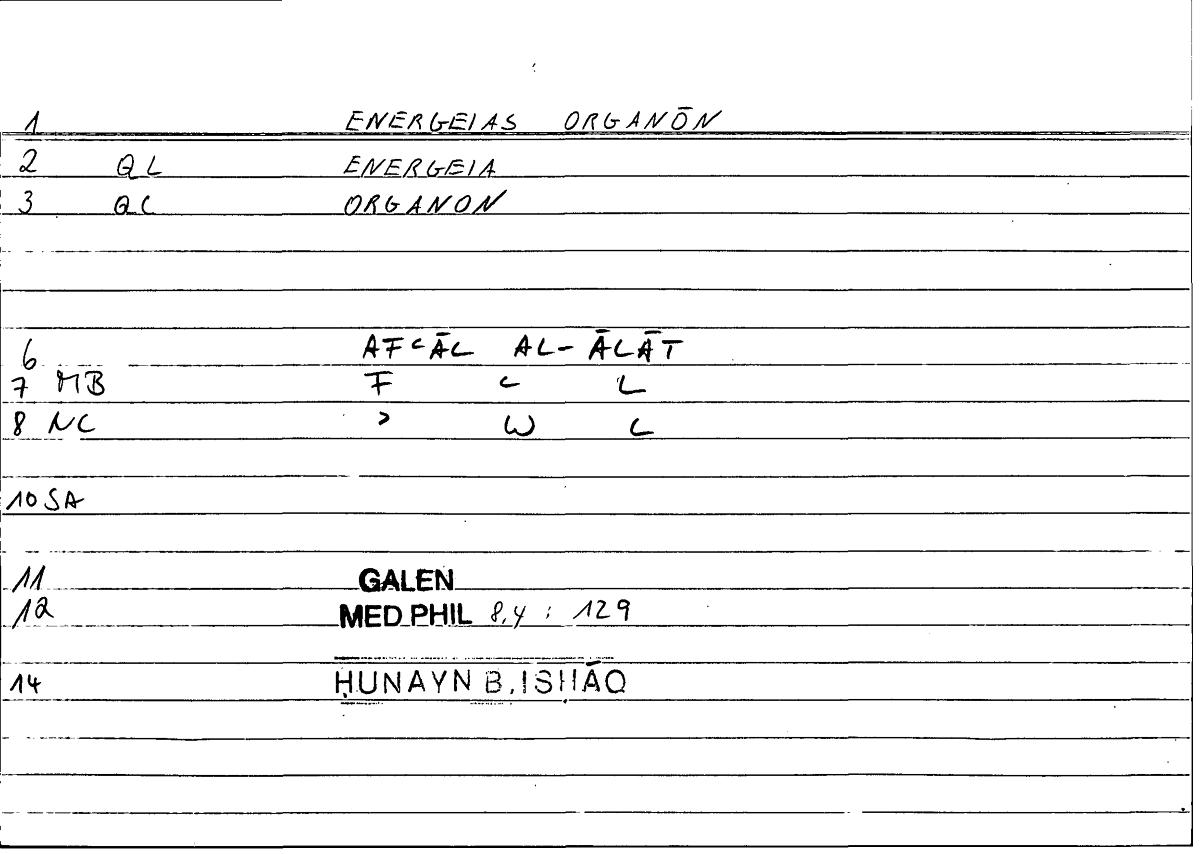 1 ENERGEIAS ORGANŌN
2 QL ENERGEIA
3 QC ORGANON
6 AFʿĀL AL-ĀLĀT
7 MB F ʿ L
8 NC ʾ W L
10 SA
11 GALEN
12 MED PHIL 8,4 : 129
14 ḤUNAYN B. ISḤĀQ